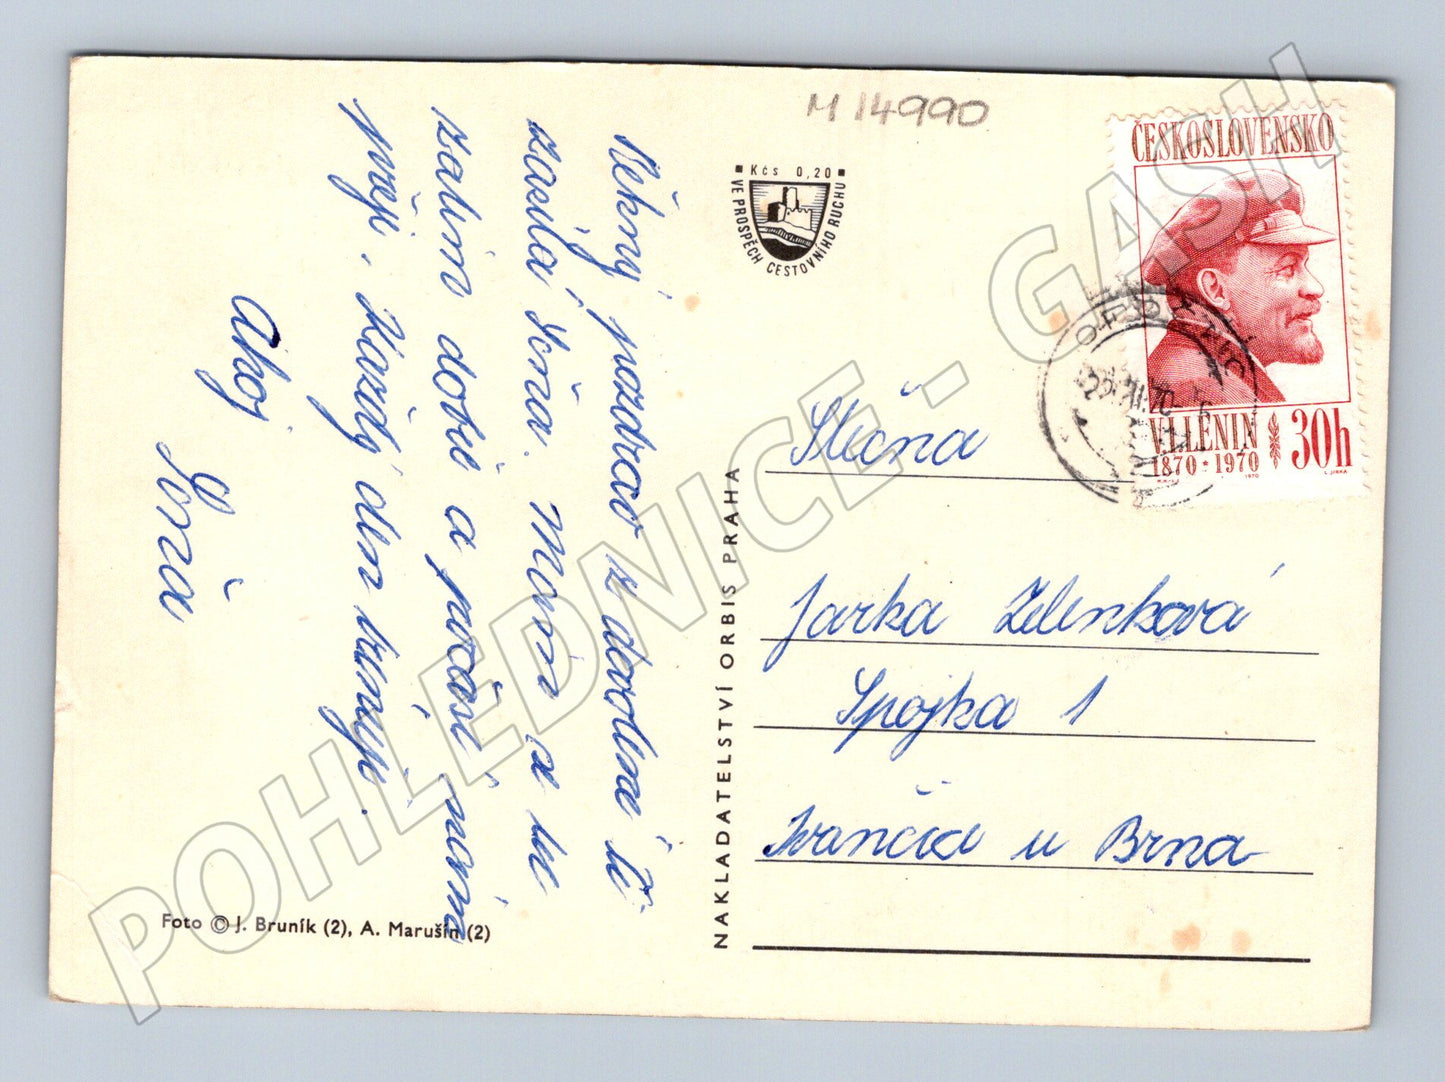 M 14990
Kčs 0,20
VE PROSPĚCH CESTOVNÍHO RUCHU
ČESKOSLOVENSKO
V.I. LENIN
1870 * 1970
30h
1970
L. JIRKA
22. 70
Pěkný pozdrav z dovolené Ti
zasílá Soňa. Mám se tu
zatím dobře a počasí nám
přeji, Každý den
Ahoj
Soňa
Slečna
Jarka Zelenková
Spojka 1
Ivančice u Brna
NAKLADATELSTVÍ ORBIS PRAHA
Foto © J. Bruník (2), A. Marušin (2)
POHLEDNICE - GASH